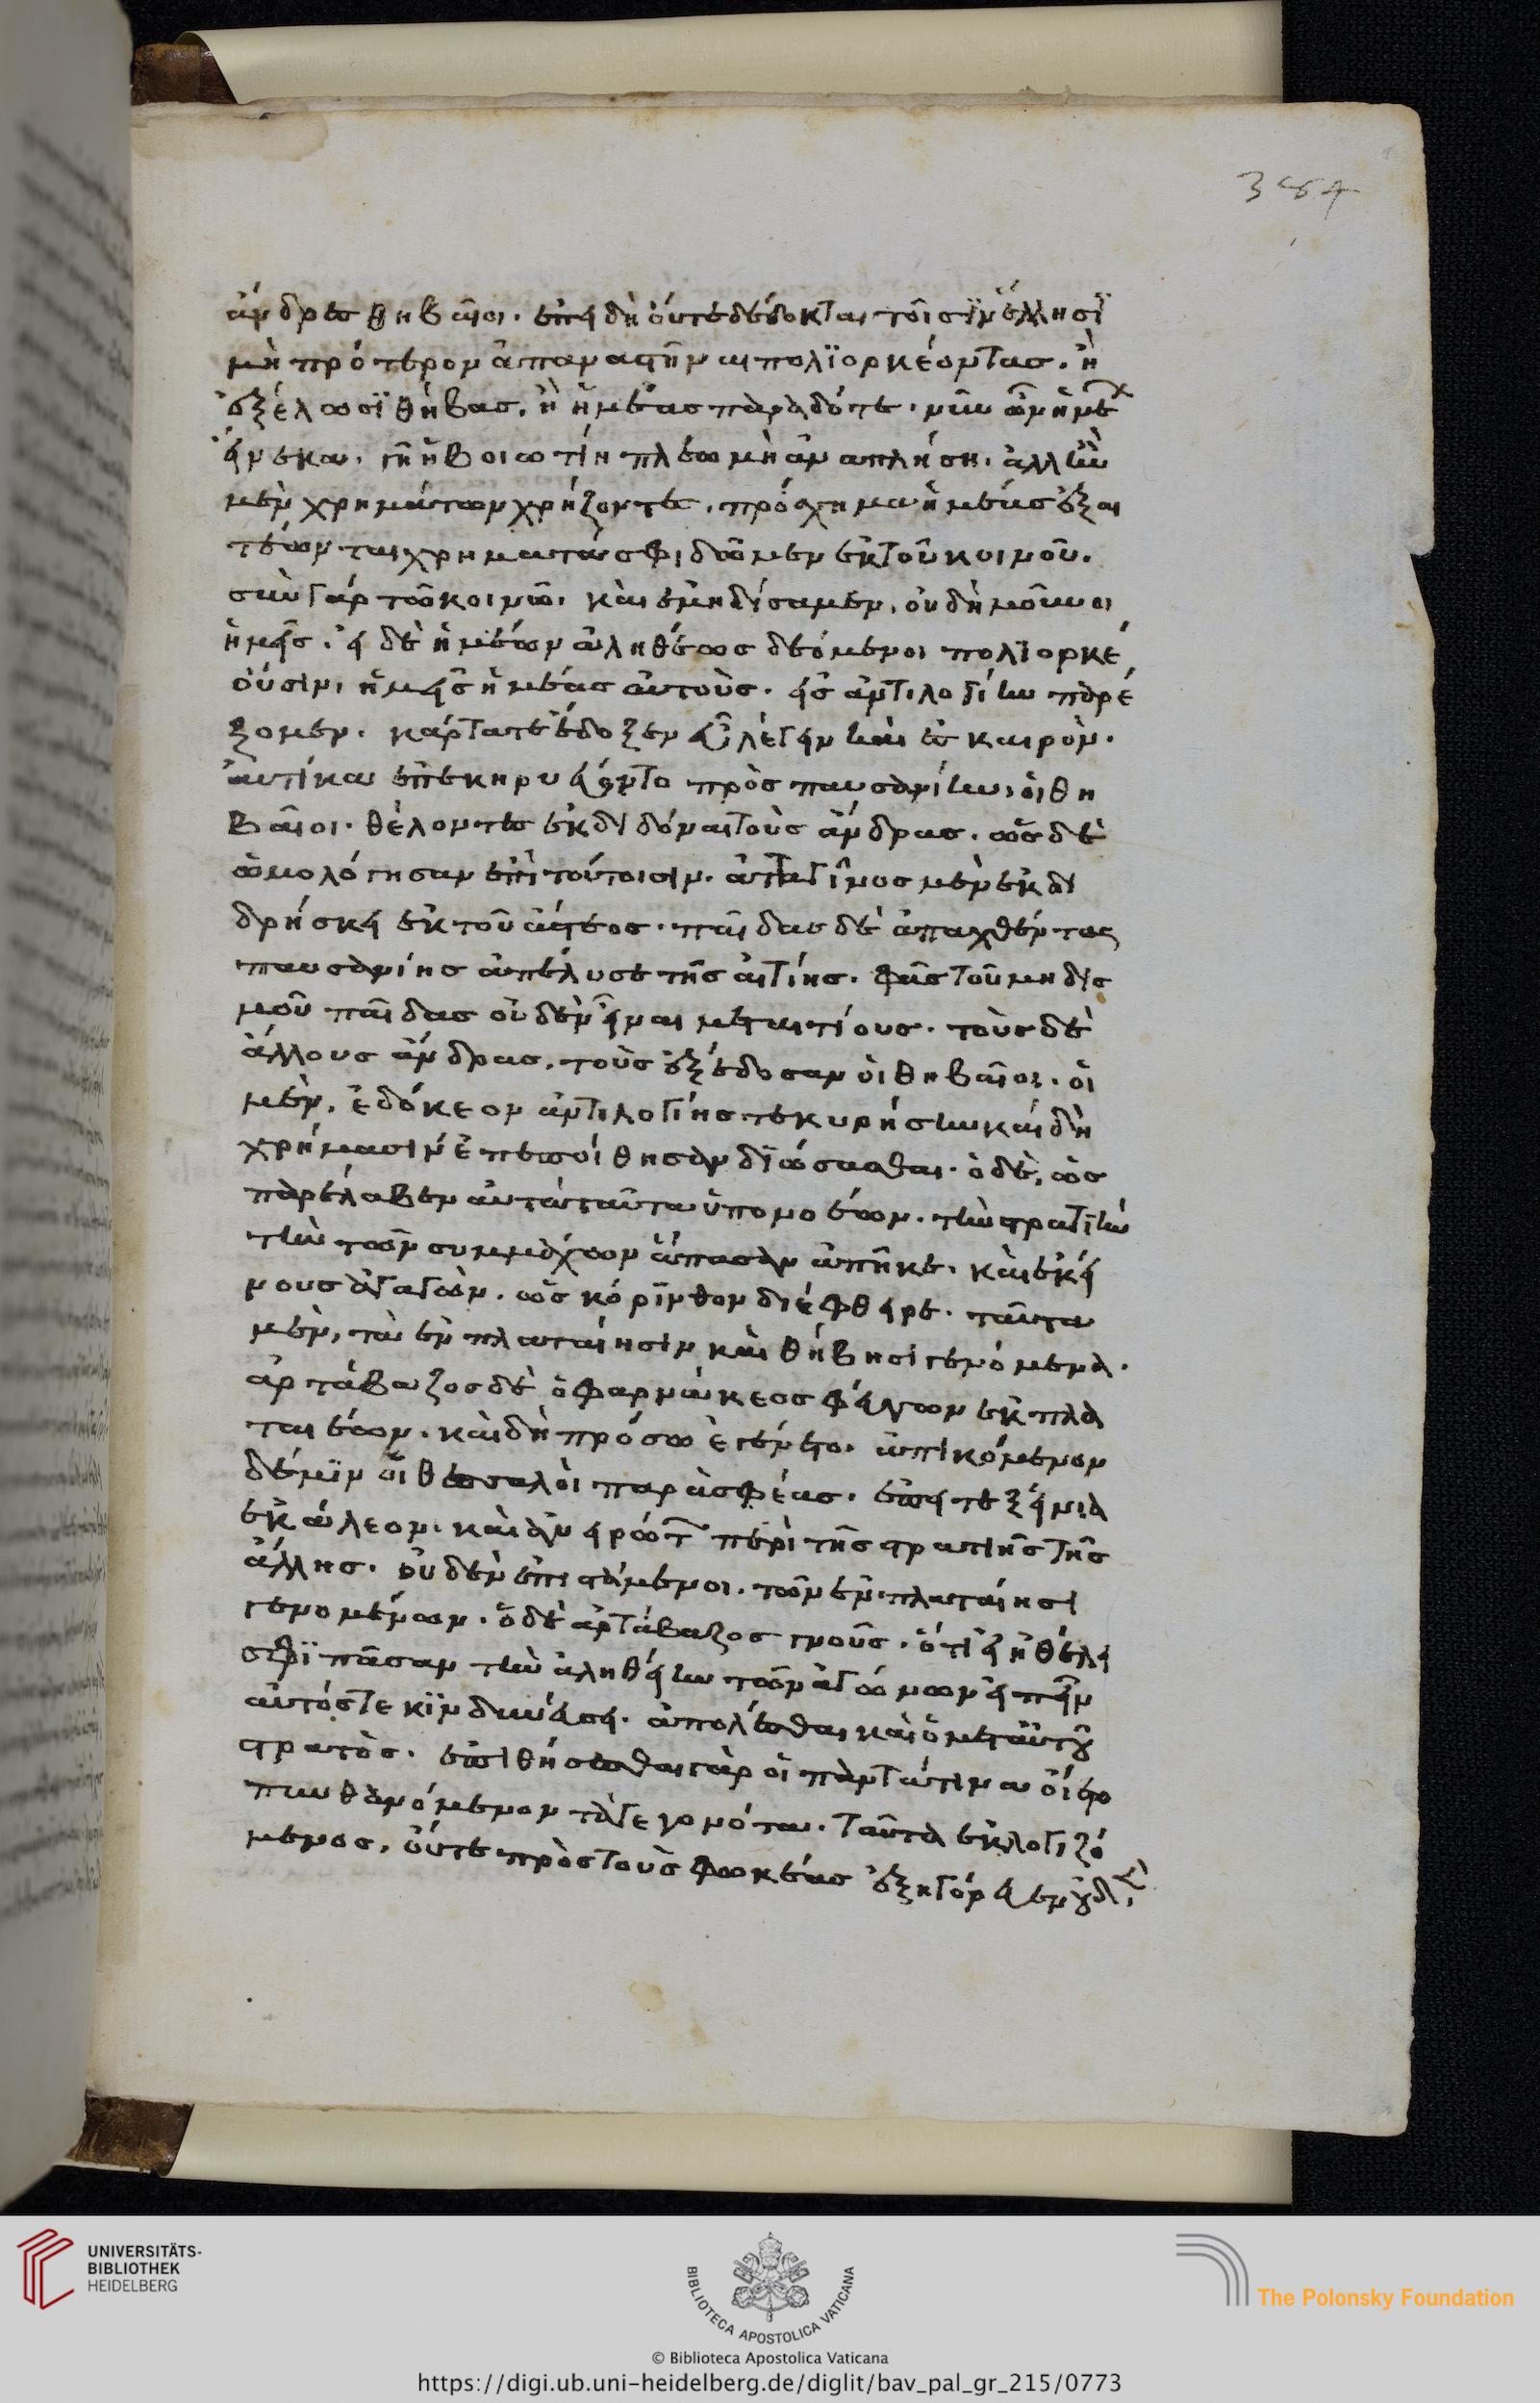 384
ἄνδρες θηβαῖοι. ἐπειδὴ οὕτε δέδοκται τοῖσϊν ἕλλησϊ
μὴ πρότερον ἀπαναστῆναι πολϊορκέοντας. ἢ
ἐξέλωσϊ θήβας. ἢ ἡμέας παραδότε. νῦν ὦν ἡμέων
εἵνεκα. γῆ ἡ βοιωτίη πλέω μὴ ἀναπλήσῃ. ἀλλ' εἰ
μὲν χρημάτων χρήζοντες. πρόσχημα ἡμέας ἐξαι
τέων ται χρήματά σφι δῶμεν ἐκ τοῦ κοινοῦ.
σὺν γὰρ τῶ κοινῶ. καὶ ἐμηδίσαμεν. οὐδὴ μοῦνοι
ἡμεῖς. εἰ δὲ ἡμέων ἀληθέως δεόμενοι πολϊορκέ
ουσϊν. ἡμεῖς ἡμέας αὐτοὺς. εἰς ἀντιλογίην παρέ
ξομεν. κάρτα τε ἔδοξεν εὖ λέγειν καὶ ἐς καιρὸν.
αὐτίκα ἐπεκηρυκεύοντο πρὸς παυσανίην οἱ θη
βαῖοι. θέλοντες ἐκδιδόναι τοὺς ἄνδρας. ὡς δὲ
ὡμολόγησαν ἐπὶ τούτοισιν. ἀτταγῖνος μὲν ἐκδι
δρήσκει ἐκ τοῦ ἄστεος. παῖδας δὲ ἀπαχθέντας
παυσανίης ἀπέλυσε τῆς αἰτίης. φὰς τοῦ μηδισ
μοῦ παῖδας οὐδὲν εἶναι μεταιτίους. τοὺς δὲ
ἄλλους ἄνδρας. τοὺς ἐξέδοσαν οἱ θηβαῖοι. οἱ
μὲν. ἐδόκεον ἀντιλογίης τε κυρήσειν καὶ δὴ
χρήμασιν ἐπεποίθησαν διώσασθαι. ὁ δὲ, ὡς
παρέλαβεν αὐτὰ ταῦτα ὑπονοέων. τὴν στρατϊὴν
τὴν τῶν συμμάχων ἅπασαν ἀπῆκε. καὶ ἐκεί
νους ἀγαγὼν. ὡς κόρϊνθον διέφθειρε. ταῦτα
μὲν, τὰ ἐν πλαταίῃσιν καὶ θήβῃσι γενόμενα.
ἀρτάβαζος δὲ ὁ φαρνάκεος φεύγων ἐκ πλα
ταιέων. καὶ δὴ πρόσω ἐγένετο. ἀπικόμενον
δέ μϊν οἱ θεσσαλοὶ παρὰ σφέας. ἐπί τε ξείνια
ἐκάλεον. καὶ ἀνειρώτων περὶ τῆς στρατιῆς τῆς
ἄλλης. οὐδὲν ἐπιστάμενοι. τῶν ἐν πλαταίῃσι
γενομένων. ὁ δὲ ἀρτάβαζος γνοὺς. ὅτι εἰ ἐθέλει
σφϊ πᾶσαν τὴν ἀληθείην τῶν ἀγώνων εἰπεῖν
αὐτός τε κϊνδυνεύσει. ἀπολέσθαι καὶ ὁ μετ' αὐτοῦ
στρατὸς. ἐπιθήσεσθαι γὰρ οἱ πάντά τινα οἴετο
πυνθανόμενον τὰ γεγονότα. ταῦτα ἐκλογιζό
μενος, οὔτε πρὸς τοὺς φωκέας ἐξηγόρευεν οὐδὲν
UNIVERSITÄTS-
BIBLIOTHEK
HEIDELBERG
BIBLIOTECA APOSTOLICA VATICANA
© Biblioteca Apostolica Vaticana
The Polonsky Foundation
https://digi.ub.uni-heidelberg.de/diglit/bav_pal_gr_215/0773